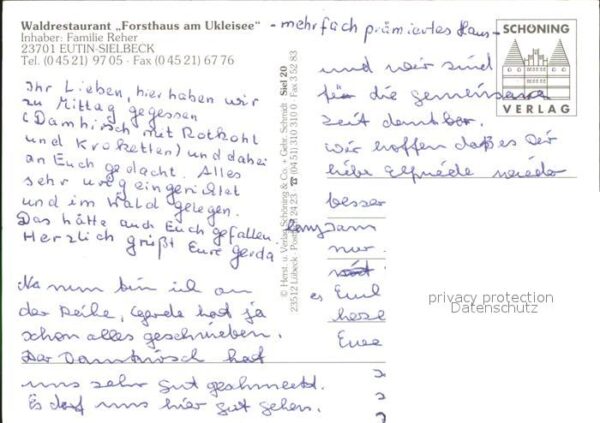 Waldrestaurant „Forsthaus am Ukleisee"
Inhaber: Familie Reher
23701 EUTIN-SIELBECK
Tel. (0 45 21) 97 05 · Fax (0 45 21) 67 76
- mehrfach prämiertes Haus -
Ihr Lieben, hier haben wir
zu Mittag gegessen
(Damhirsch mit Rotkohl
und Kroketten) und dabei
an Euch gedacht. Alles
sehr urig eingerichtet
und im Wald gelegen.
Das hätte auch Euch gefallen.
Herzlich grüßt Eure Gerda
Na nun bin ich an
der Reihe, Gerda hat ja
schon alles geschrieben.
Der Damhirsch hat
uns sehr gut geschmeckt.
Es darf uns hier gut gehen.
© Herst. u. Verlag Schöning & Co. + Gebr. Schmidt Siel 20
23512 Lübeck · Postfach 24 23 ☎ (04 51) 310 310 Fax 3 52 83
SCHÖNING
VERLAG
und wir sind
für die gemeinsame
Zeit dankbar.
Wir hoffen daß es Dir
liebe Elfriede wieder
besser
langsam
nur
es Euch
Eure
privacy protection
Datenschutz